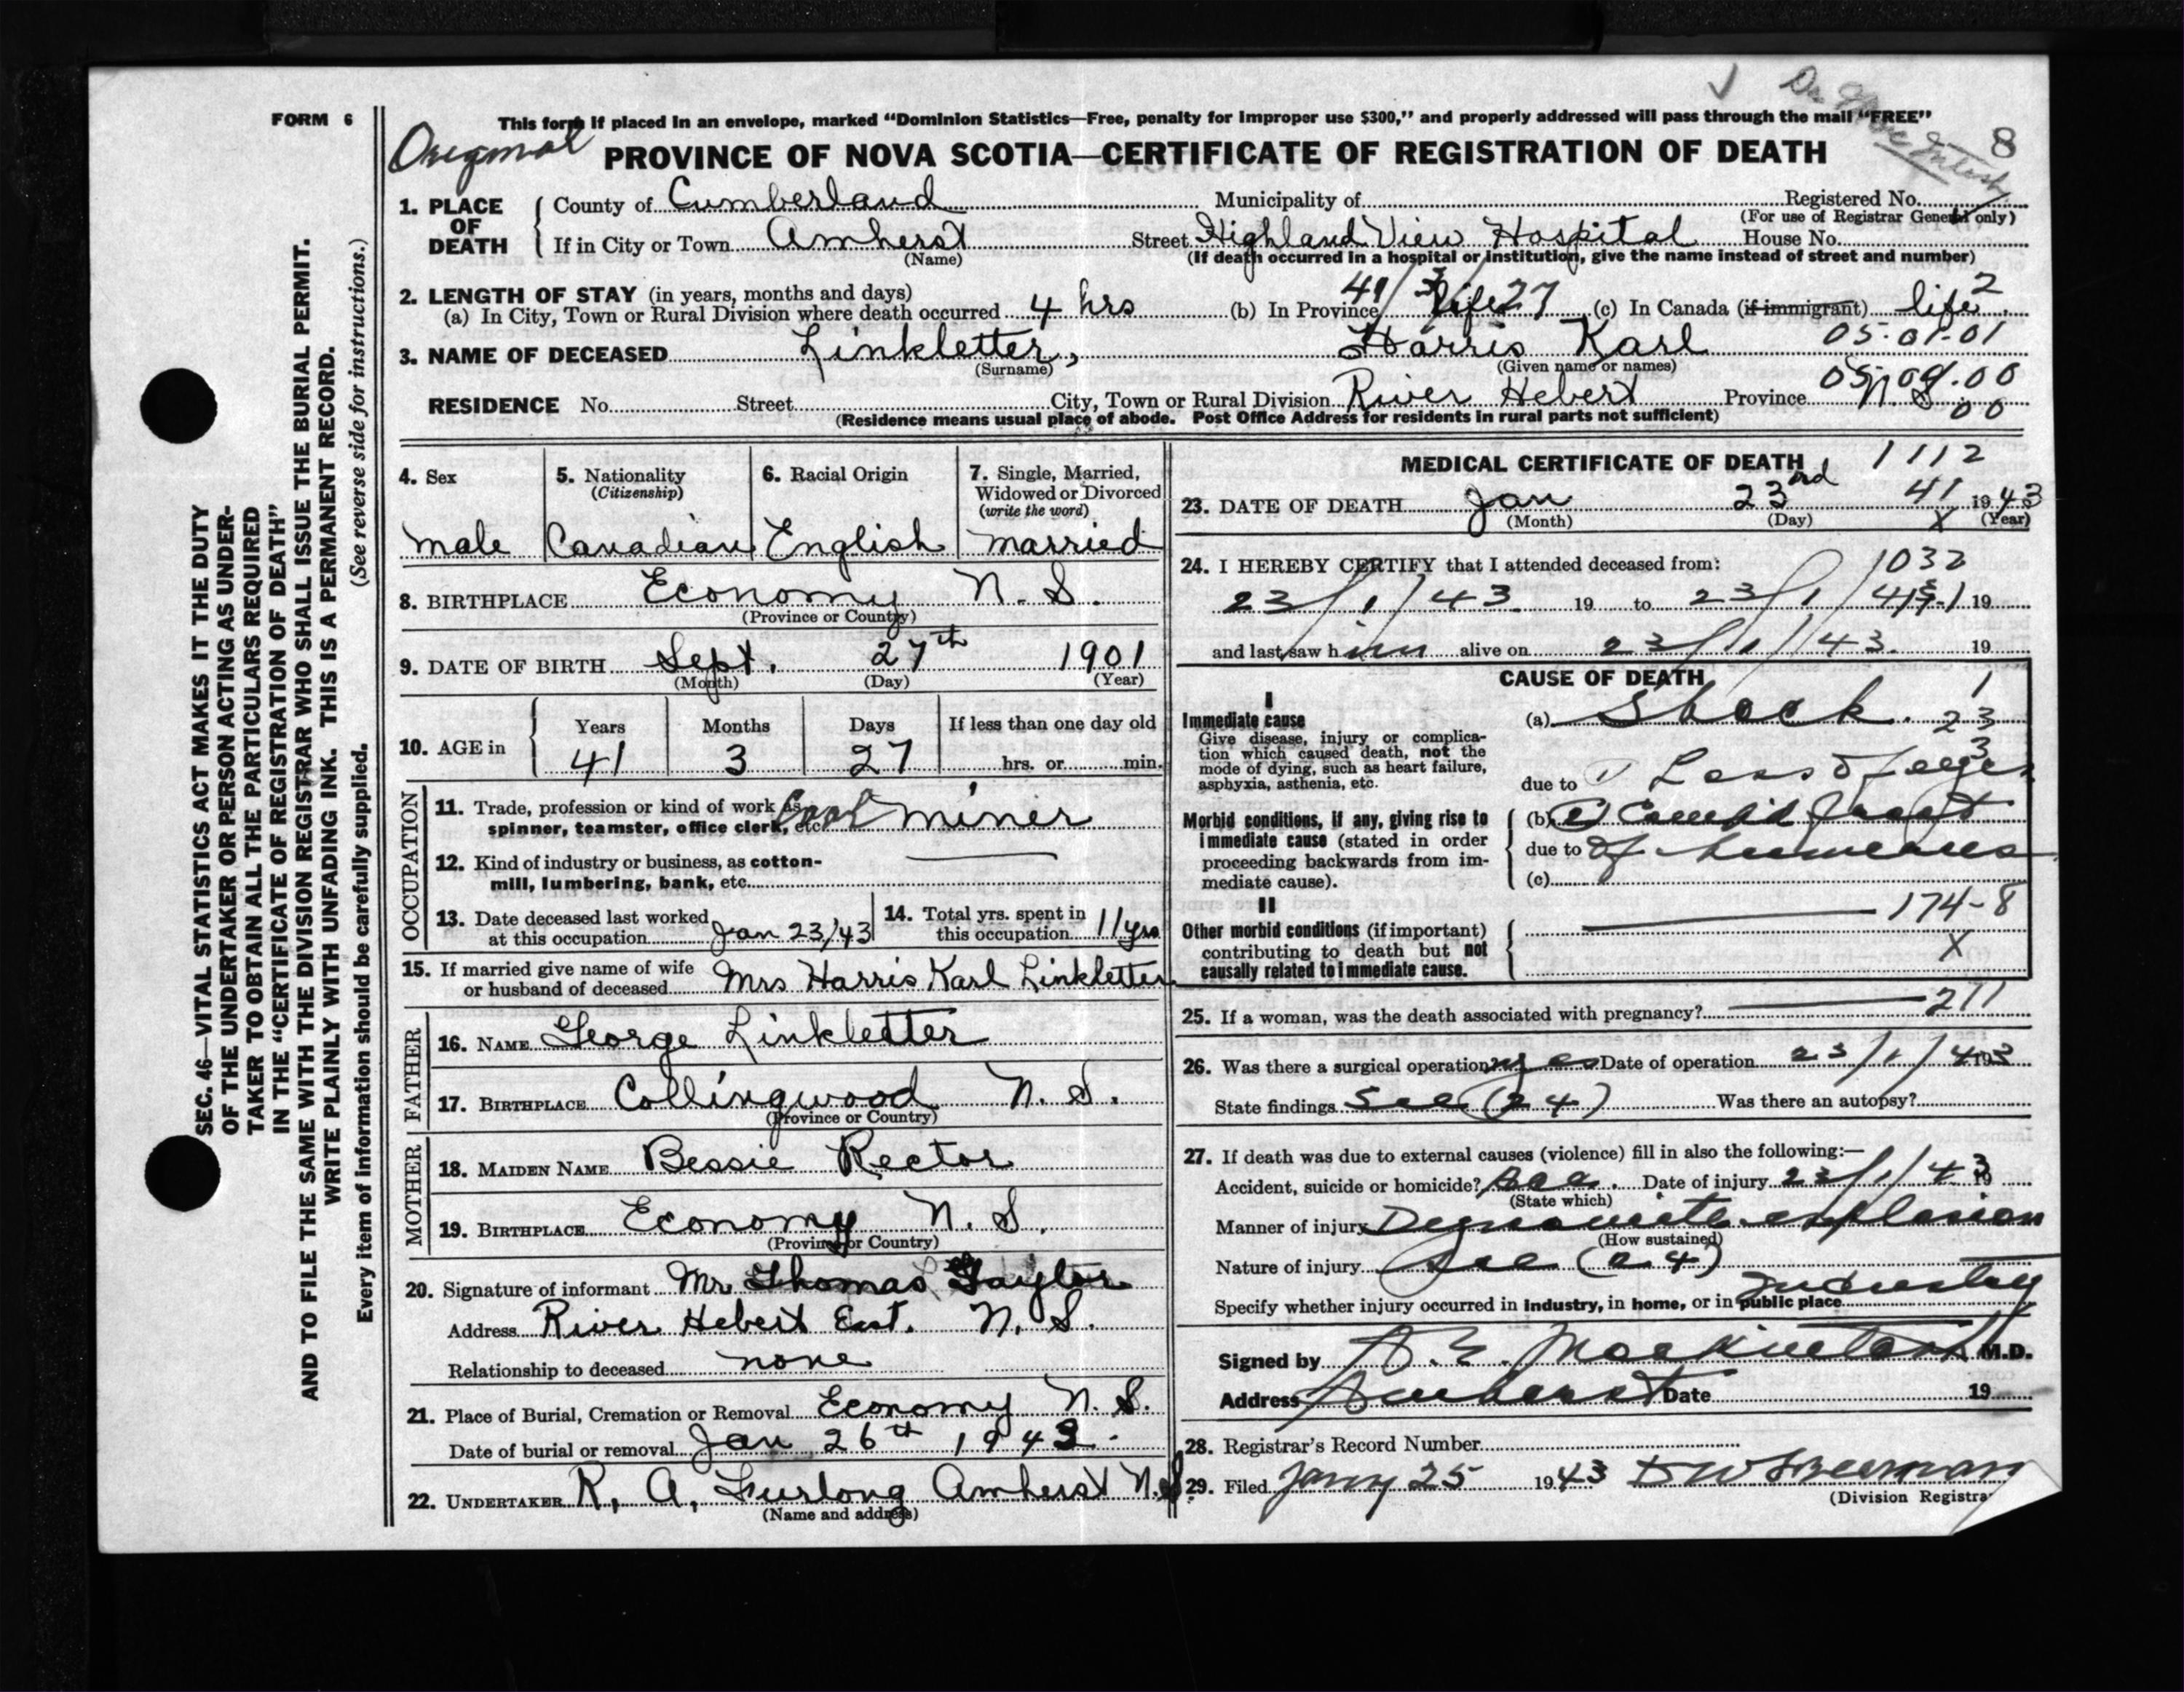 FORM 6
This form if placed in an envelope, marked "Dominion Statistics—Free, penalty for improper use $300," and properly addressed will pass through the mail "FREE"
Original
PROVINCE OF NOVA SCOTIA—CERTIFICATE OF REGISTRATION OF DEATH
8
1. PLACE OF DEATH
County of Cumberland Municipality of Registered No.
(For use of Registrar General only)
If in City or Town Amherst Street Highland View Hospital House No.
(Name) (If death occurred in a hospital or institution, give the name instead of street and number)
2. LENGTH OF STAY (in years, months and days) 41/3/27 2
(a) In City, Town or Rural Division where death occurred 4 hrs (b) In Province life (c) In Canada (if immigrant) life
3. NAME OF DECEASED Linkletter, Harris Karl 05-01-01
(Surname) (Given name or names)
RESIDENCE No. Street City, Town or Rural Division River Hebert Province N.S. 00
(Residence means usual place of abode. Post Office Address for residents in rural parts not sufficient)
4. Sex
male
5. Nationality
(Citizenship)
Canadian
6. Racial Origin
English
7. Single, Married,
Widowed or Divorced
(write the word)
married
8. BIRTHPLACE Economy N.S.
(Province or Country)
9. DATE OF BIRTH Sept. 27th 1901
(Month) (Day) (Year)
10. AGE in
Years Months Days If less than one day old
41 3 27 hrs. or min.
OCCUPATION
11. Trade, profession or kind of work as Coal miner
spinner, teamster, office clerk, etc.
12. Kind of industry or business, as cotton-
mill, lumbering, bank, etc.
13. Date deceased last worked
at this occupation Jan 23/43
14. Total yrs. spent in
this occupation 11 yrs
15. If married give name of wife
or husband of deceased Mrs Harris Karl Linkletter
FATHER
16. NAME George Linkletter
17. BIRTHPLACE Collingwood N.S.
(Province or Country)
MOTHER
18. MAIDEN NAME Bessie Rector
19. BIRTHPLACE Economy N.S.
(Province or Country)
20. Signature of informant Mr Thomas Taylor
Address River Hebert East. N.S.
Relationship to deceased none
21. Place of Burial, Cremation or Removal Economy N.S.
Date of burial or removal Jan 26th 1943.
22. UNDERTAKER R. A. Furlong Amherst N.S.
(Name and address)
MEDICAL CERTIFICATE OF DEATH 1112
41
23. DATE OF DEATH Jan 23rd 1943
(Month) (Day) (Year)
X
24. I HEREBY CERTIFY that I attended deceased from: 1032
23/1/43 19 to 23/1/43 19
and last saw him alive on 23/1/43. 19
CAUSE OF DEATH
1
I
Immediate cause
Give disease, injury or complica-
tion which caused death, not the
mode of dying, such as heart failure,
asphyxia, asthenia, etc.
(a) Shock. 23
3
due to Loss of
Morbid conditions, if any, giving rise to
immediate cause (stated in order
proceeding backwards from im-
mediate cause).
(b) Compd fract
due to of humerus
(c)
II
174-8
Other morbid conditions (if important)
contributing to death but not
causally related to immediate cause.
X
25. If a woman, was the death associated with pregnancy? 211
26. Was there a surgical operation? yes Date of operation 23/1/43
State findings See (24) Was there an autopsy?
27. If death was due to external causes (violence) fill in also the following:—
Accident, suicide or homicide? Acc. Date of injury 23/1/43 19
(State which)
Manner of injury Dynamite explosion
(How sustained)
Nature of injury See (24)
Specify whether injury occurred in industry, in home, or in public place Industry
Signed by A. E. MacKintosh M.D.
Address Amherst Date 19
28. Registrar's Record Number
29. Filed Jany 25 1943
(Division Registrar
SEC. 46—VITAL STATISTICS ACT MAKES IT THE DUTY
OF THE UNDERTAKER OR PERSON ACTING AS UNDER-
TAKER TO OBTAIN ALL THE PARTICULARS REQUIRED
IN THE "CERTIFICATE OF REGISTRATION OF DEATH"
AND TO FILE THE SAME WITH THE DIVISION REGISTRAR WHO SHALL ISSUE THE BURIAL PERMIT.
WRITE PLAINLY WITH UNFADING INK. THIS IS A PERMANENT RECORD.
Every item of information should be carefully supplied. (See reverse side for instructions.)